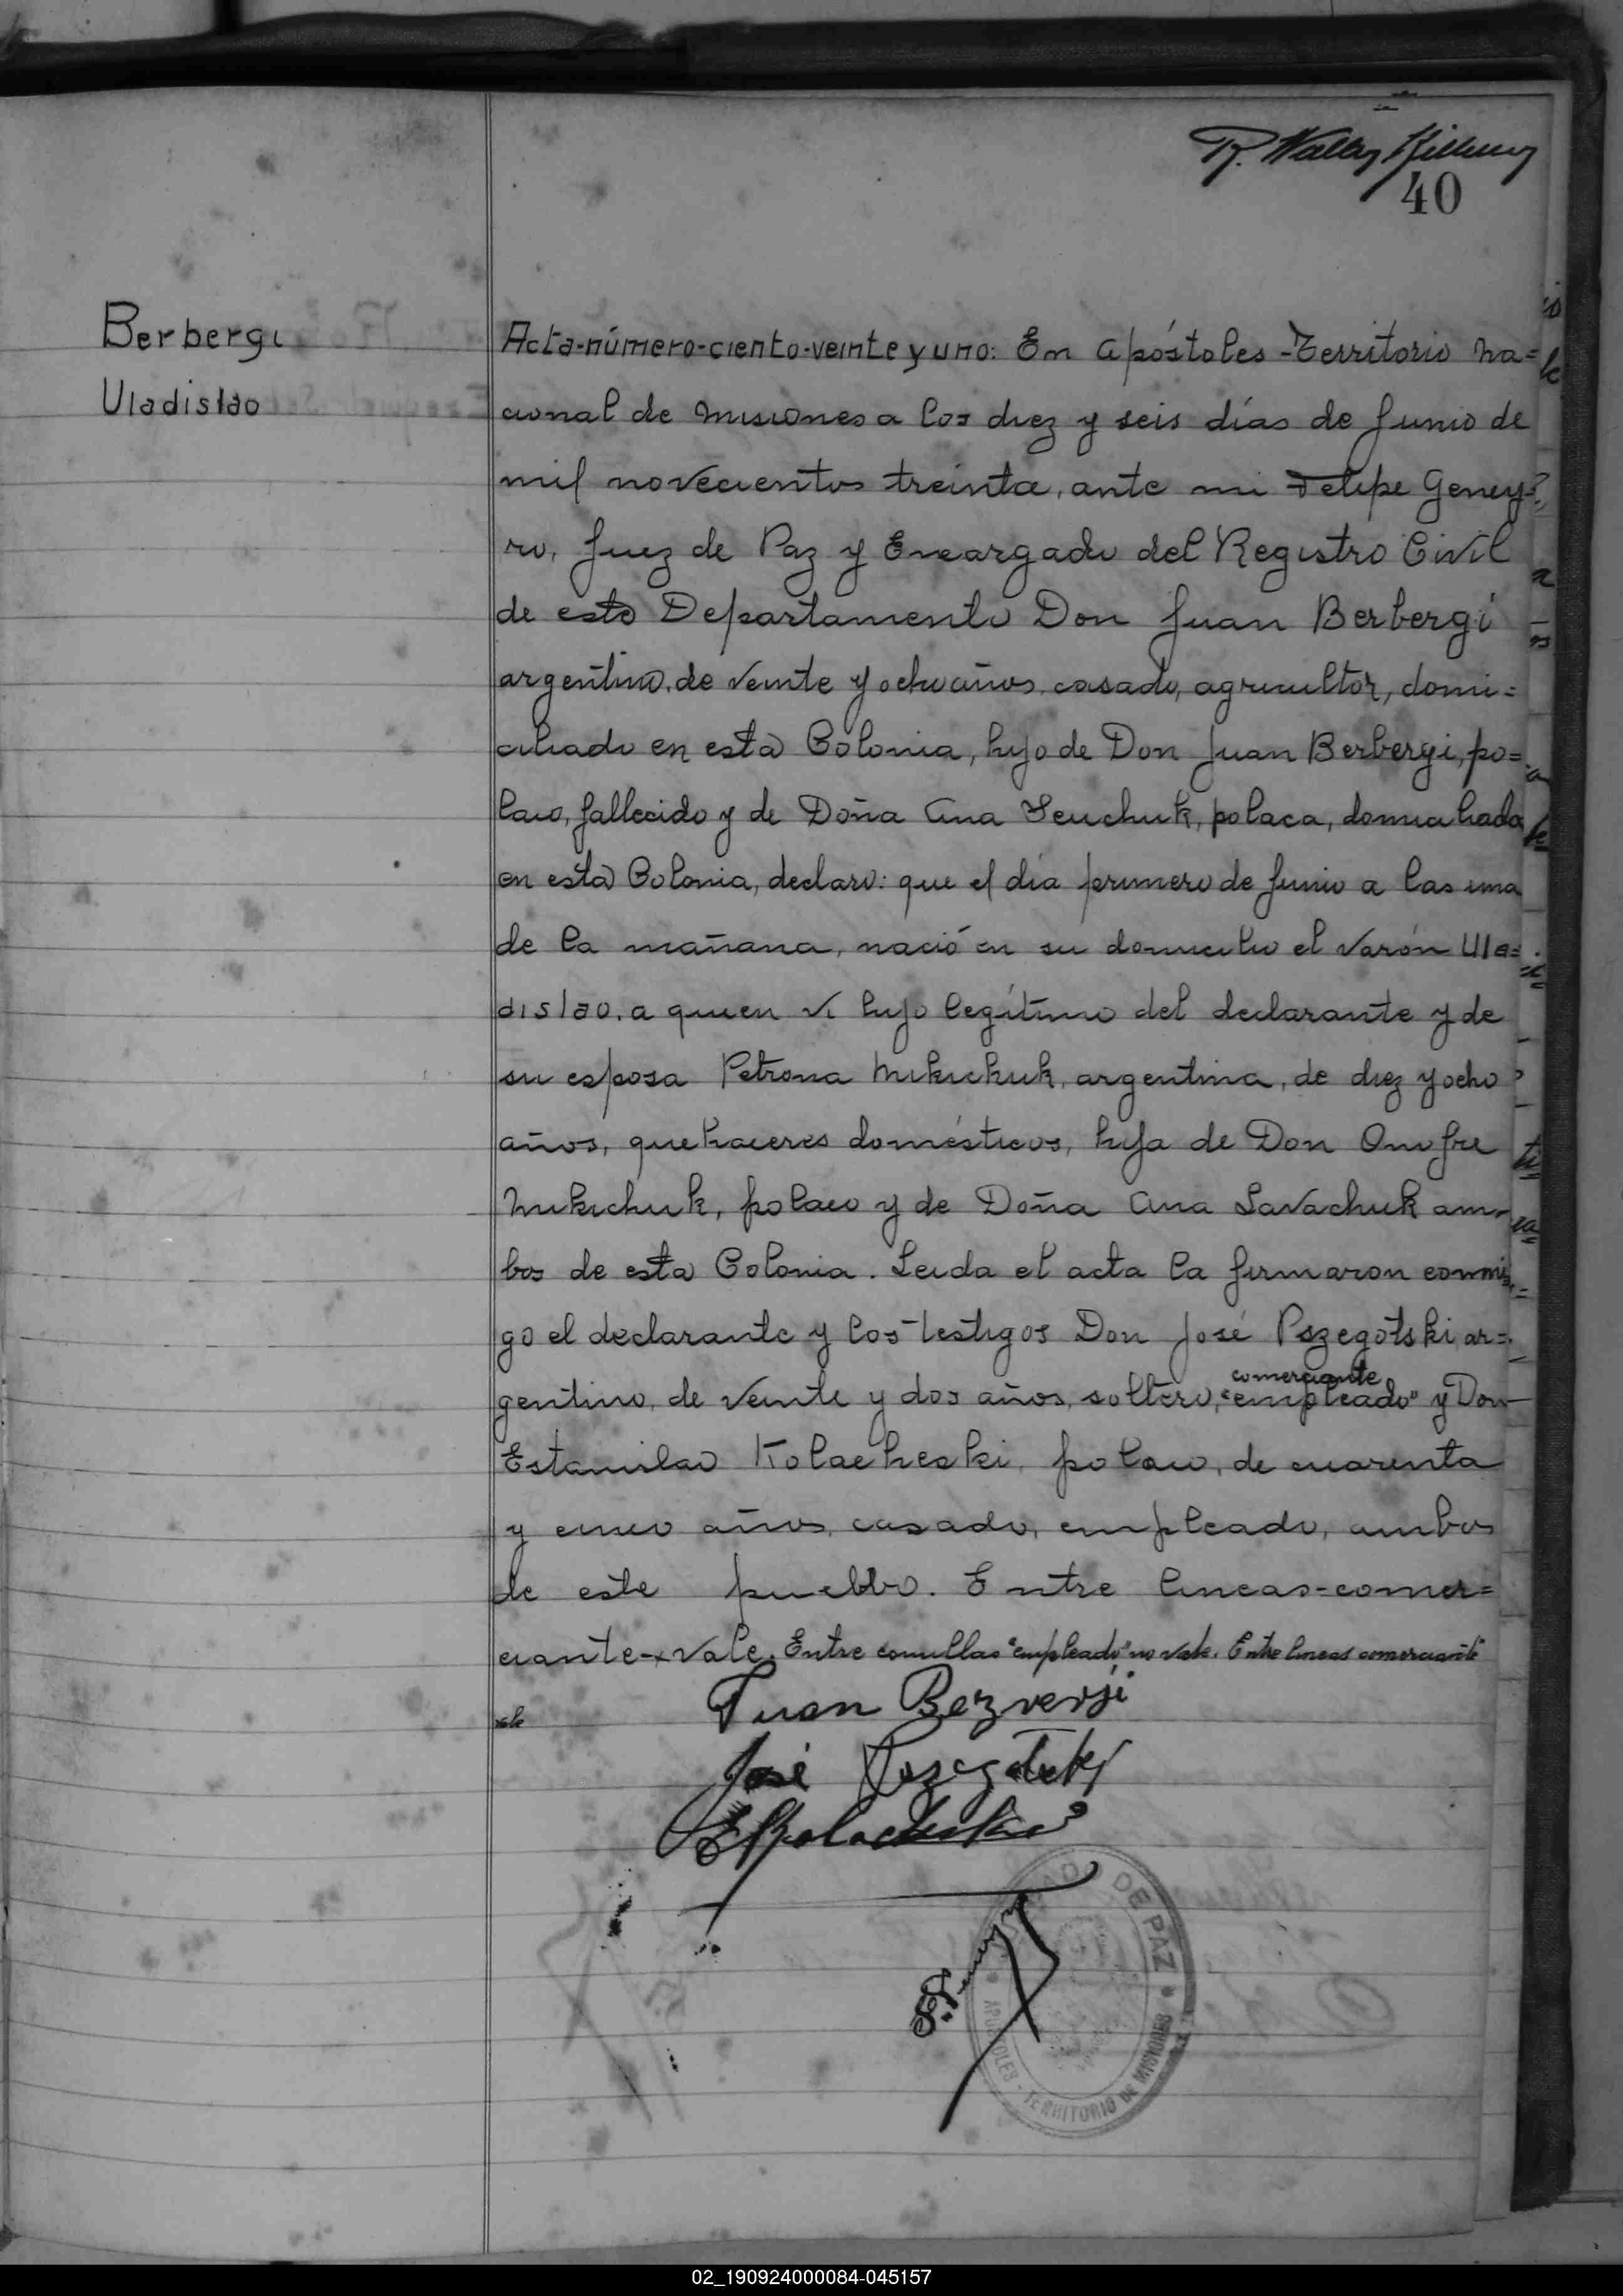 40
Berbergi
Uladislao
Acta-número-ciento-veinte y uno: En Apóstoles-Territorio Na=
cional de Misiones a los diez y seis días de Junio de
mil novecientos treinta, ante mi Felipe Geney=
ro, Juez de Paz y Encargado del Registro Civil
de este Departamento Don Juan Berbergi
argentino, de veinte y ocho años, casado, agricultor, domi=
ciliado en esta Colonia, hijo de Don Juan Berbergi, po=
laco, fallecido y de Doña Ana Senchuk, polaca, domiciliada
en esta Colonia, declaro: que el día primero de Junio a las una
de la mañana, nació en su domicilio el varón Ula=
dislao, a quien vi hijo legítimo del declarante y de
su esposa Petrona Mikichuk, argentina, de diez y ocho
años, quehaceres domésticos, hija de Don Onofre
Mikichuk, polaco y de Doña Ana Savachuk am=
bos de esta Colonia. Leida el acta la firmaron conmi=
go el declarante y los testigos Don José Pszegotski, ar=
comerciante
gentino, de veinte y dos años, soltero, "empleado" y Don
Estanislao Kolacheski, polaco, de cuarenta
y cinco años, casado, empleado, ambos
de este pueblo. Entre lineas-comer=
ciante-x vale. Entre comillas "empleado" no vale. Entre lineas comerciante
vale
Juan Bezversi
José
DE PAZ
APOSTOLES - TERRITORIO DE MISIONES
02_190924000084-045157